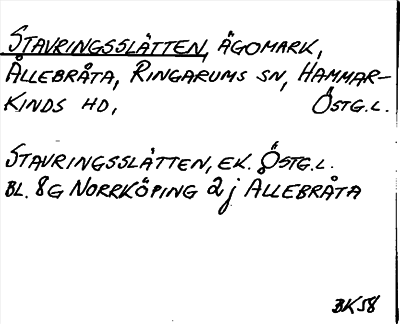 STAVRINGSSLÄTTEN, ÄGOMARK,
ÅLLEBRÅTA, RINGARUMS SN, HAMMAR-
KINDS HD, ÖSTG.L.
STAVRINGSSLÄTTEN, EK. ÖSTG.L.
BL. 8G NORRKÖPING 2j ALLEBRÅTA
BK58